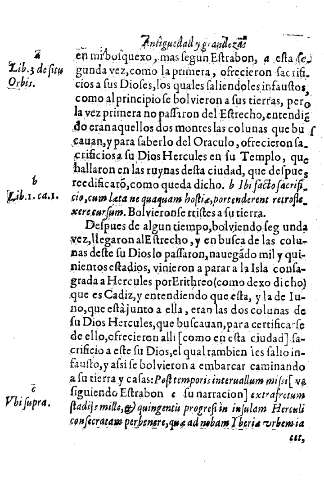 Antiguedad y grandezas
a
Lib. 3 de situ
Orbis.
en mi bosquexo, mas segun Estrabon, a esta se
gunda vez, como la primera, ofrecieron sacrifi
cios a sus Dioses, los quales saliendoles infaustos,
como al principio se bolvieron a sus tierras, pero
la vez primera no passarō del Estrecho, entendiē
do eran aquellos dos montes las colunas que bus
cauan, y para saberlo del Oraculo, ofrecieron sa
crificios a su Dios Hercules en su Templo, que
hallaron en las ruynas desta ciudad, que despues
reedificarō, como queda dicho. b Ibi facto sacrifi
b
Lib. 1. ca. 1.
cio, cum lata ne quaquam hostia, portenderent retrofle
xere cursum. Bolvieronse tristes a su tierra.
Despues de algun tiempo, bolviendo seg unda
vez, llegaron al Estrecho, y en busca de las colu
nas deste su Dios lo passaron, nauegādo mil y qui
nientos estadios, vinieron a parar a la Isla consa
grada a Hercules por Erithreo (como dexo dicho)
que es Cadiz, y entendiendo que esta, y la de Iu
no, que està junto a ella, eran las dos colunas de
su Dios Hercules, que buscauan, para certificarse
de ello, ofrecieron alli [como en esta ciudad] sa
crificio a este su Dios, el qual tambien les salio in
fausto, y assi se bolvieron a embarcar caminando
a su tierra y casas: Post temporis interuallum misit [va
c
Vbi supra.
siguiendo Estrabon c su narracion] extra fretum
stadijs mille, & quingentis progressi in insulam Herculi
consecratam perbenere, qua ad nobam Iberia vrbem ia
cet,